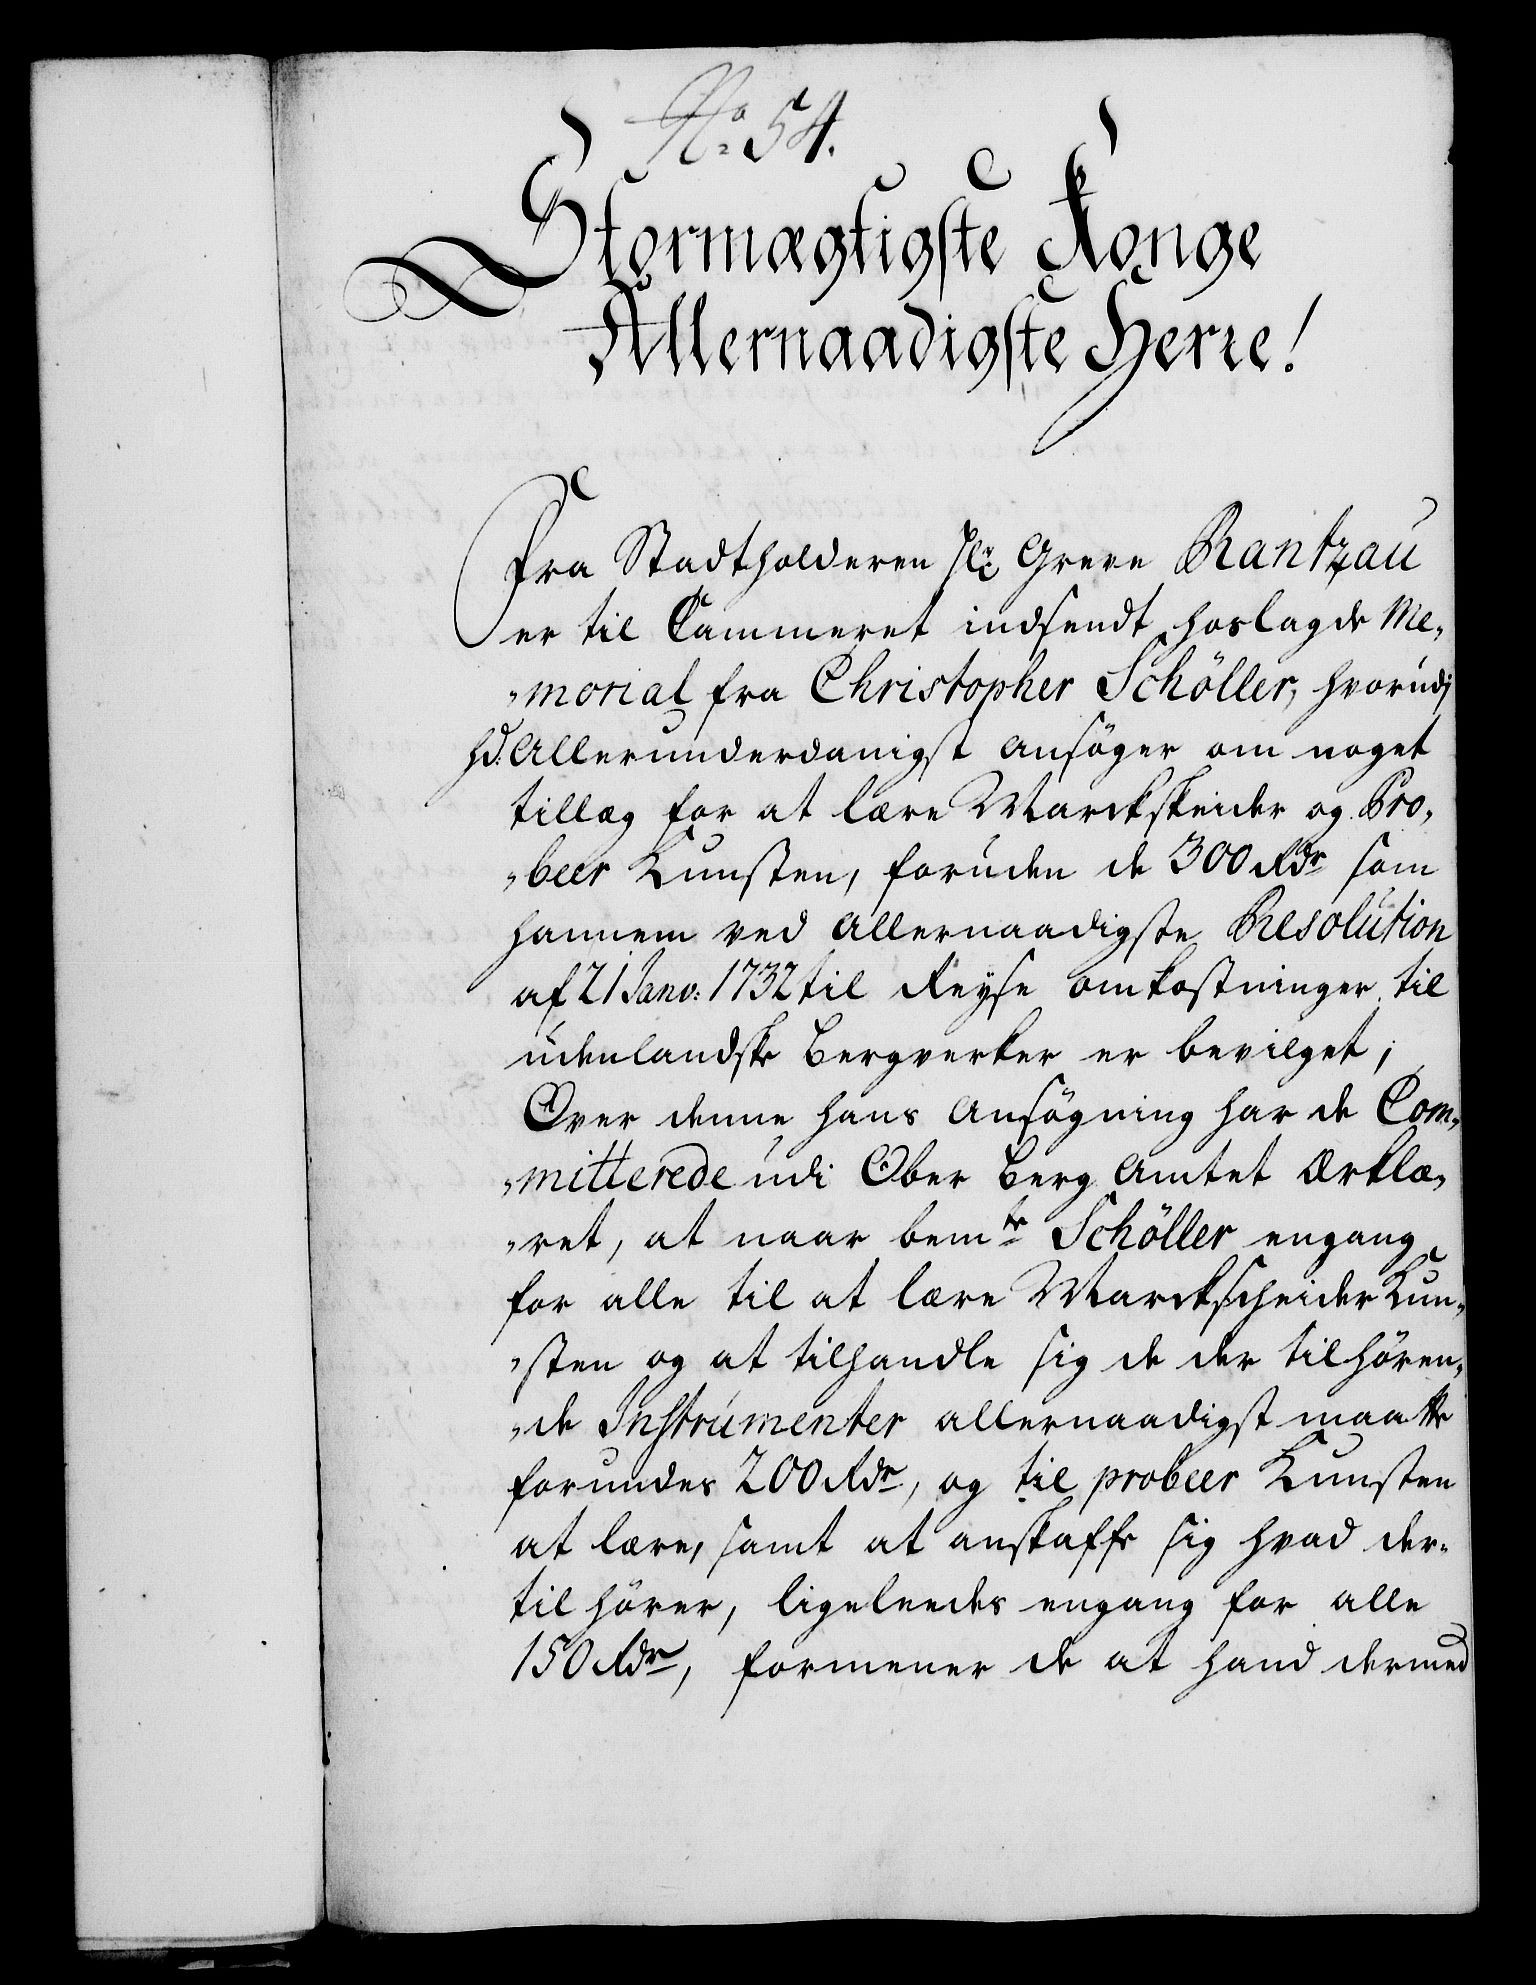 No. 54.
Stormægtigste Konge
Allernaadigste Herre!
Fra Stadtholderen Hr. Greve Rantzau
er til Cammeret indsendt hoslagde Me„
„morial fra Christopher Schöller, hvorudj
hd. Allerunderdanigst ansøger om noget
tillæg for at lære Marckskeider og Pro„
„beer Kunsten, foruden de 300 Rdr som
hannem ved allernaadigste Resolution
af 21 Janv: 1732 til Reyse omkostninger til
udenlandske bergverker er bevilget;
Over denne hans ansøgning har de Com„
„mitterede udi Ober Berg Amtet Ærklæ„
„ret, at naar bemte Schöller engang
for alle til at lære Marckscheider Kun„
„sten og at tilhandle sig de der tilhören„
„de Instrumenter allernaadigst maatte
forundes 200 Rdr, og til probeer Kunsten
at lære, samt at anskaffe sig hvad der„
til hörer, ligeleedes engang for alle
150 Rdr, formener de at hand dermed